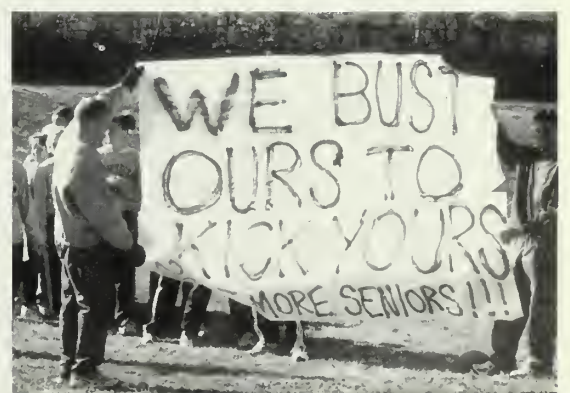 WE BUST
OURS TO
KICK YOURS
MORE SENIORS!!!